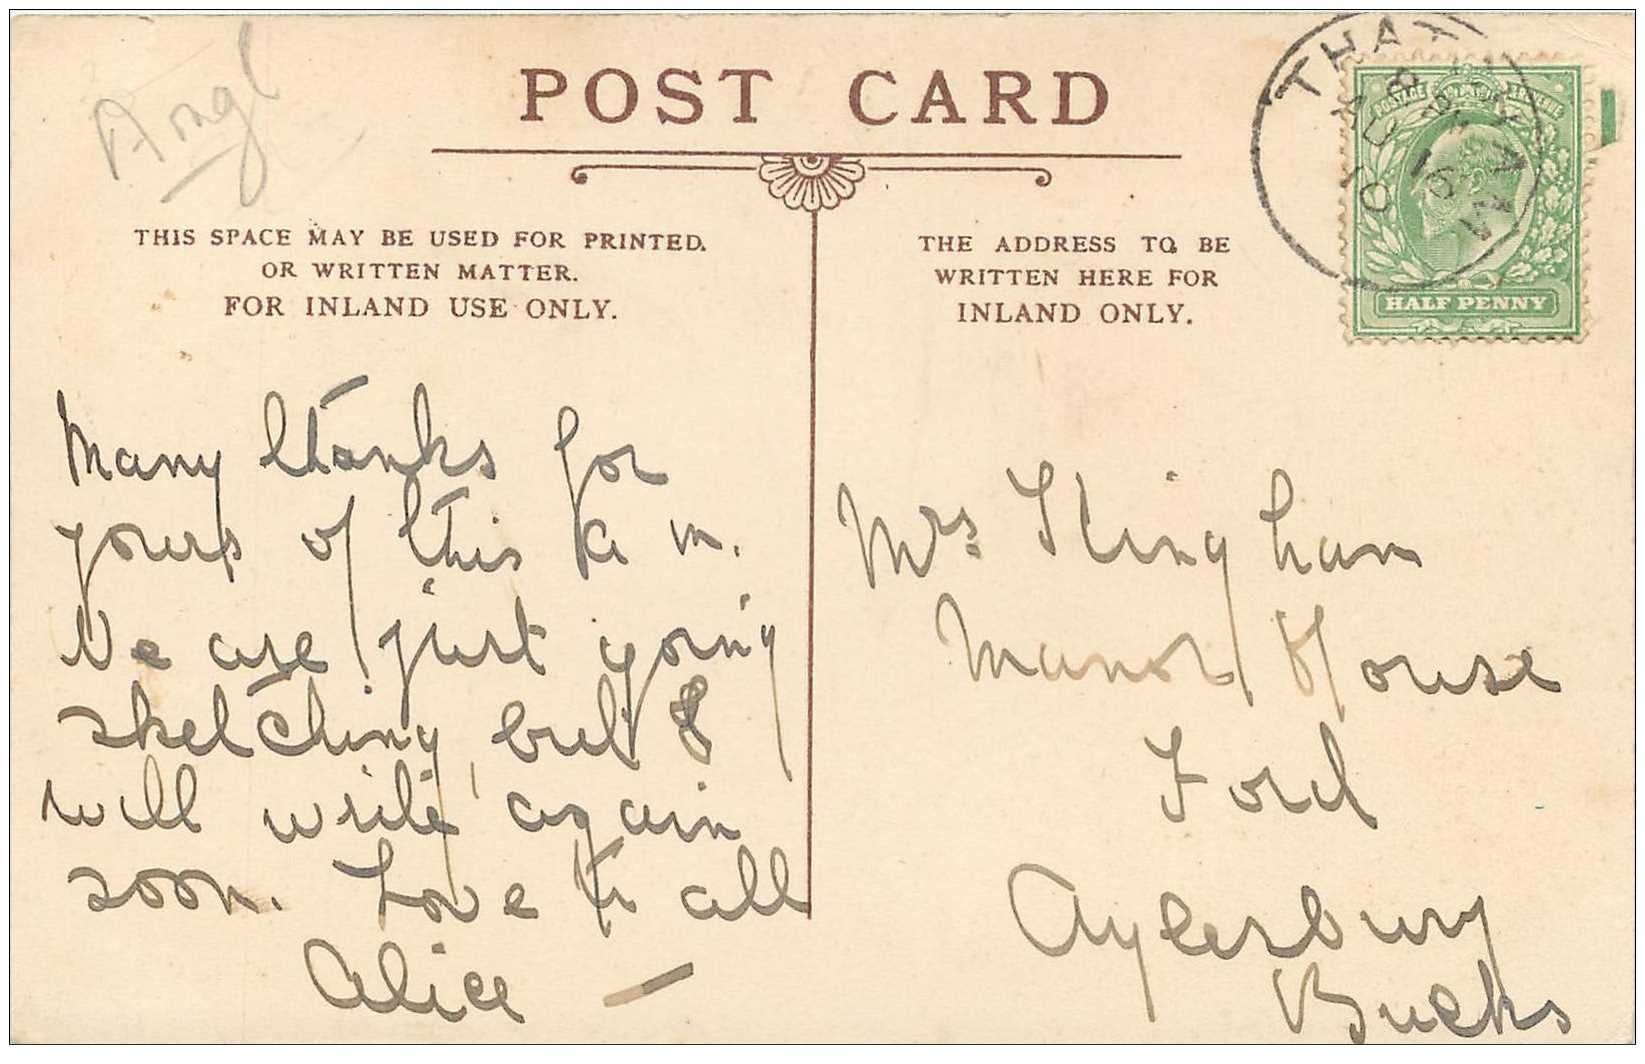 Angl
POST CARD
THIS SPACE MAY BE USED FOR PRINTED.
OR WRITTEN MATTER.
FOR INLAND USE ONLY.
THE ADDRESS TO BE
WRITTEN HERE FOR
INLAND ONLY.
POSTAGE REVENUE
HALF PENNY
THAX
Many thanks for
yours of this a m.
We are just going
sketching, but I
will write again
soon. Love to all
Alice —
Mrs
Manor House
Ford
Aylesbury
Bucks